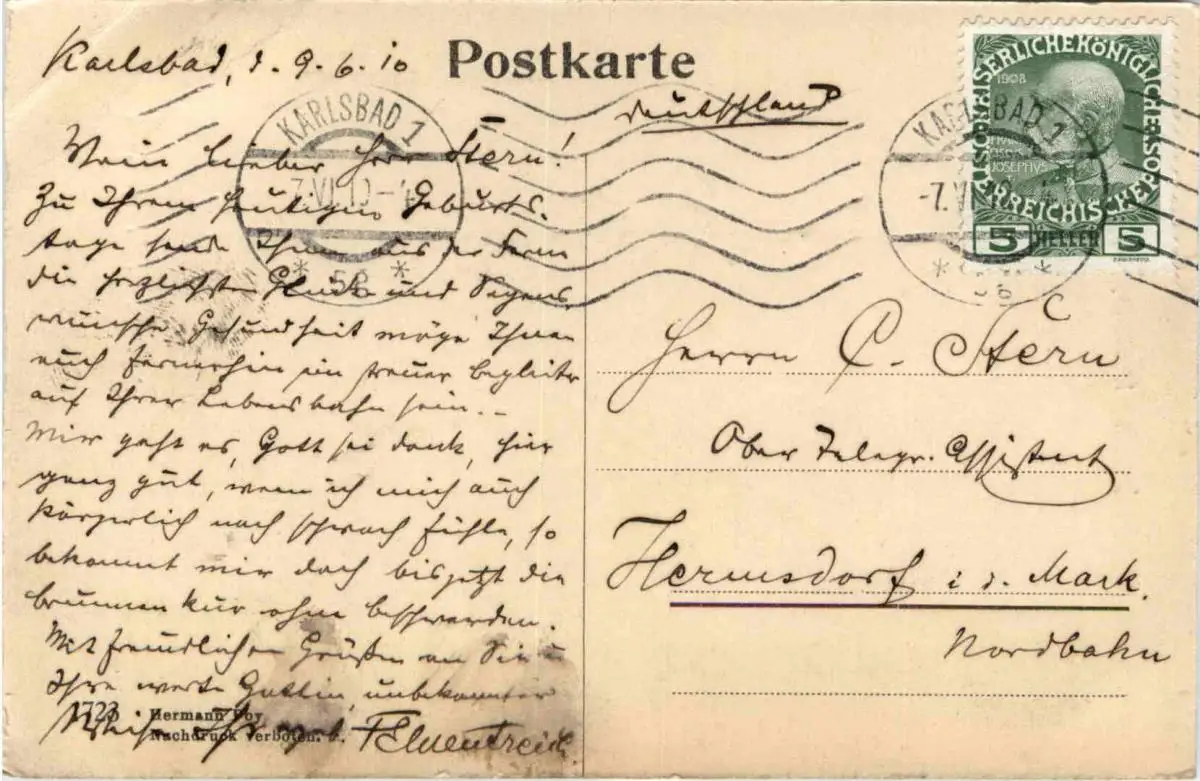 Karlsbad, d. 9.6.10
Postkarte
Deutschland
KARLSBAD 1
7.VI.10
* 5B *
KARLSBAD 1
-7.VI
ÖSTERREICHISCHE POST
KAISERLICHE KÖNIGLICHE
1908
FRANCISCVS
JOSEPHVS
5 HELLER 5
Mein lieber Herr Stern!
Zu Ihrem heutigen Geburts-
tage sende Ihnen aus der Ferne
die herzlichsten Glück- und Segens-
wünsche. Gesundheit möge Ihnen
auch fernerhin ein treuer Begleiter
auf Ihrer Lebensbahn sein.
Mir geht es, Gott sei dank, hier
ganz gut, wenn ich mich auch
körperlich noch schwach fühle, so
bekommt mir doch bis jetzt die
brunnenkur ohne beschwerden.
Mit freundlichen Grüßen an Sie u
Ihre werte Gattin, unbekannter
Weise Ihr
1723 Hermann Poy
Nachdruck verboten.
Herrn C. Stern
Ober Telegr. Assistent
Hermsdorf i. d. Mark.
Nordbahn